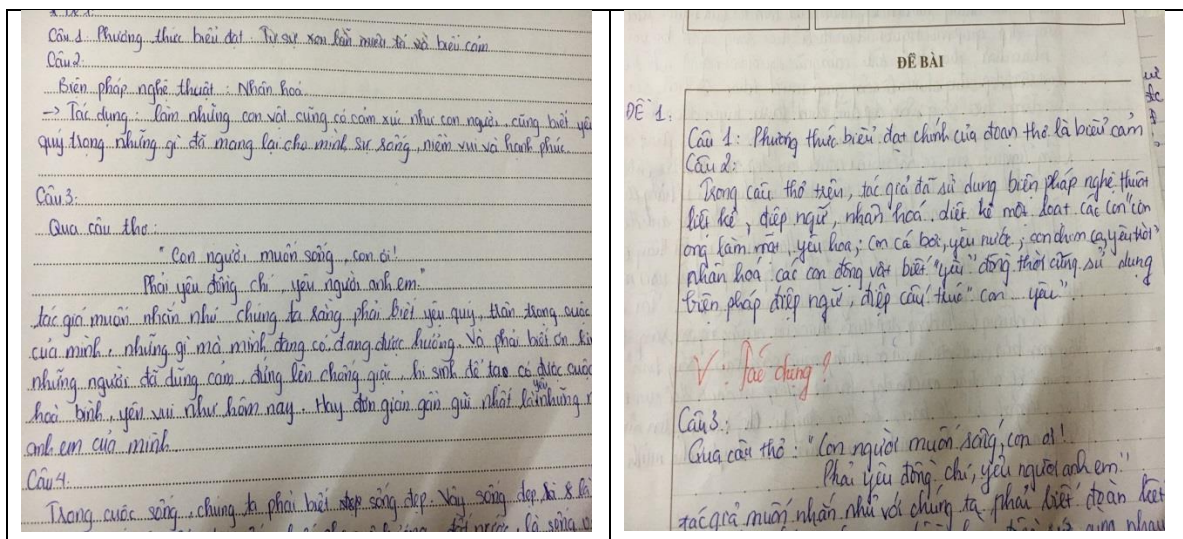 Câu 1: Phương thức biểu đạt: Tự sự xen lẫn miêu tả và biểu cảm
Câu 2:
Biện pháp nghệ thuật: Nhân hoá
→ Tác dụng: làm những con vật cũng có cảm xúc như con người, cũng biết yêu
quý trọng những gì đã mang lại cho mình sự sống, niềm vui và hạnh phúc.
Câu 3:
Qua câu thơ:
"Con người muốn sống, con ơi!
Phải yêu đồng chí, yêu người anh em."
tác giả muốn nhắn nhủ chúng ta rằng phải biết yêu quý, trân trọng cuộc
của mình, những gì mà mình đang có đang được hưởng. Và phải biết ơn
những người đã dũng cảm, đứng lên chống giặc, hi sinh để tao có được cuộc
hoà bình, yên vui như hôm nay. Hay đơn giản gần gũi nhất là yêu những
anh em của mình.
Câu 4.
Trong cuộc sống, chúng ta phải biết sống đẹp. Vậy sống đẹp là
ĐỀ BÀI
ĐỀ 1:
Câu 1: Phương thức biểu đạt chính của đoạn thơ là biểu cảm
Câu 2:
Trong câu thơ trên, tác giả đã sử dụng biện pháp nghệ thuật
liệt kê, điệp ngữ, nhân hoá. liệt kê một loạt các con "con
ong làm mật, yêu hoa; con cá bơi, yêu nước; con chim ca, yêu trời"
nhân hoá: các con động vật biết "yêu" đồng thời cũng sử dụng
biện pháp điệp ngữ, điệp cấu trúc "con ... yêu".
V: Tác dụng?
Câu 3:
Qua câu thơ: "Con người muốn sống, con ơi!
Phải yêu đồng chí, yêu người anh em."
tác giả muốn nhắn nhủ với chúng ta phải biết đoàn kết